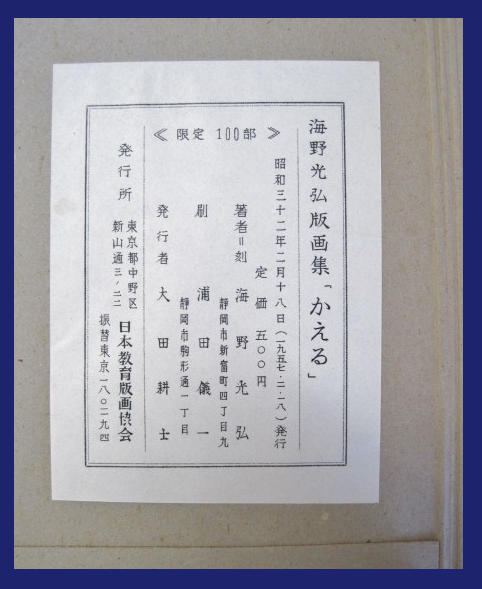 海野光弘版画集「かえる」
≪ 限定 100部 ≫
昭和三十二年二月十八日(一九五七・二・二八)発行
定価 五〇〇円
著者=刻 海野光弘
静岡市新富町四丁目九
刷 浦田儀一
静岡市駒形通一丁目
発行者 大田耕士
発行所
東京都中野区
新山通三ノ二二
日本教育版画協会
振替東京一八〇二九四